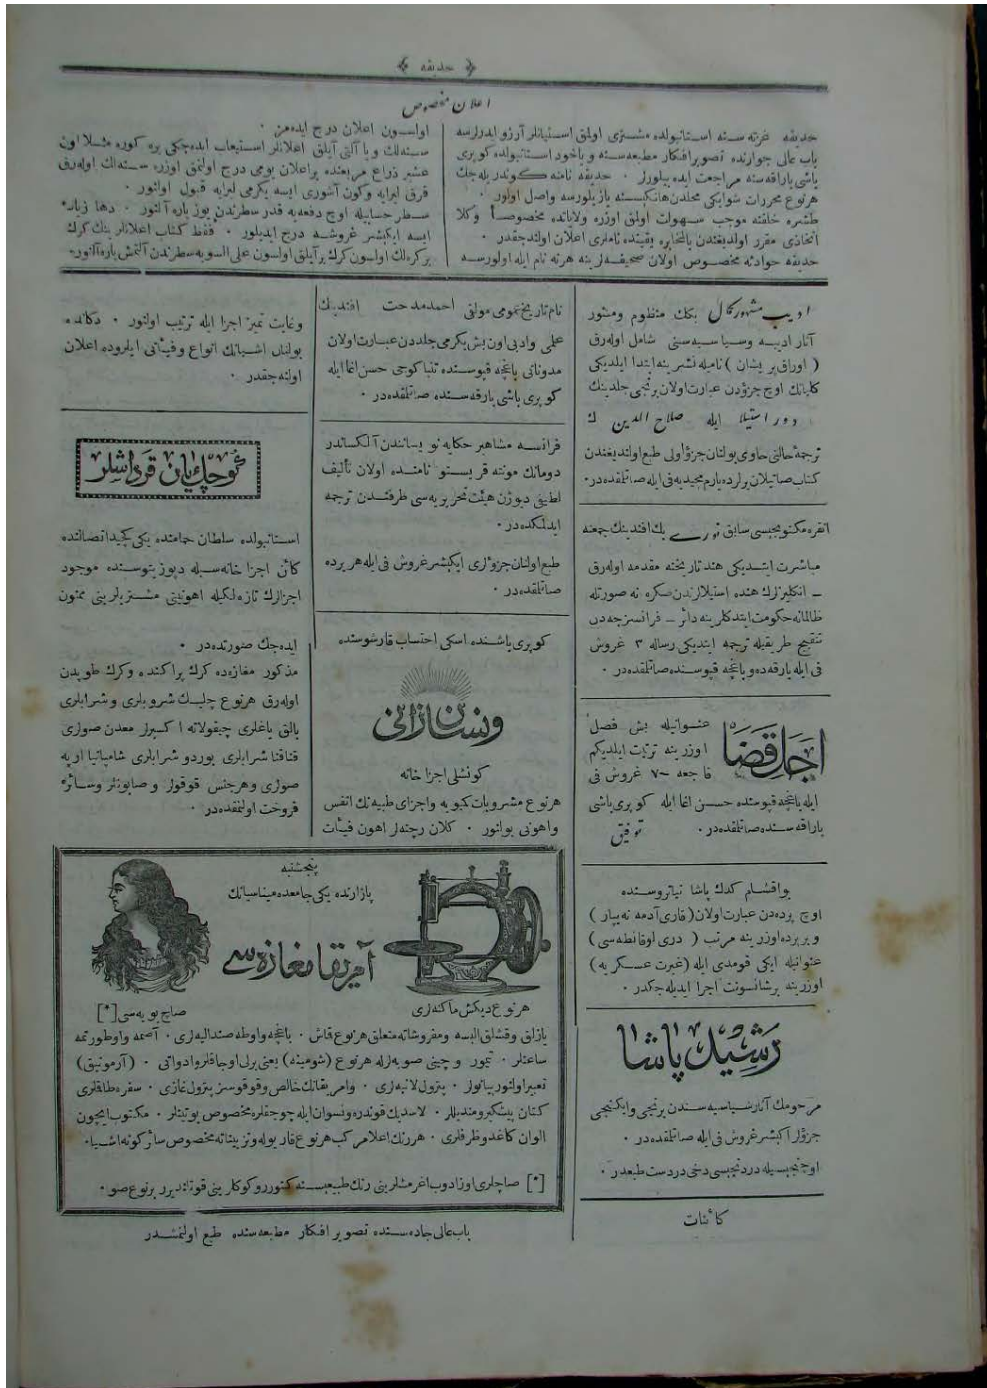 ﴿ حدیقه ﴾
اعلان مخصوص
حدیقه غزته سنه استانبولده مشتری اولمق استیانلر آرزو ایدرلرسه
باب عالی جوارنده تصویر افکار مطبعه سنه و یاخود استانبولده کوپری
باشی بارقه سنه مراجعت ایده بیلورلر . حدیقه نامنه کوندریله جك
هر نوع محررات شو ایکی محلدن هانکیسنه یازیلورسه واصل اولور .
طشره خلقنه موجب سهولت اولمق اوزره ولایاتده مخصوصاً وکلا
اتخاذی مقرر اولدیغندن بالمخابره یقینده ناملری اعلان اولنه جقدر .
حدیقه حوادثه مخصوص اولان صحیفه لرینه هر نه نام ایله اولورسه
اولسون اعلان درج ایده مز .
سنه لك و یا آلتی آیلق اعلانلر استیعاب ایده جکی یره کوره مثلا اون
عشیر ذراع مربعنده بر اعلان یومی درج اولنمق اوزره سنه لك اوله رق
قرق لیرایه و کون آشوری ایسه یکرمی لیرایه قبول اولنور .
سطر حسابیله اوچ دفعه یه قدر سطرندن یوز پاره آلنور . دها زیاده
ایسه ایکیشر غروشه درج ایدیلور . فقط کتاب اعلانلر بنك کرك
بر کره لك اولسون کرك بر آیلق اولسون علی السویه سطرندن آلتمش پاره آلنور.
ادیب مشهور کمال بکك منظوم ومنثور
آثار ادبیه و سیاسیه سنی شامل اوله رق
( اوراق پریشان ) نامیله نشرینه ابتدا ایلدیکی
کلیاتك اوچ جزؤدن عبارت اولان برنجی جلدینك
دور استیلا ایله صلاح الدین ك
ترجمه حالنی حاوی بولنان جزؤ اولی طبع اولندیغندن
کتاب صاتیلان یرلرده یارم مجیدیه فی ایله صاتلمقده در.
انقره مکتوبجیسی سابق نوری بك افندینك جمعنه
مباشرت ایتدیکی هند تاریخنه مقدمه اوله رق
– انکلیزلرك هنده استیلالرندن صکره نه صورتله
ظالمانه حکومت ایتدکلرینه دائر – فرانسزجه دن
تنقیح طریقیله ترجمه ایتدیکی رساله ٣ غروش
فی ایله بارقه ده و باغچه قپوسنده صاتلمقده در .
اجل قضا
عنوانیله بش فصل
اوزرینه ترتیب ایلدیکم
فاجعه ٧ غروش فی
ایله باغچه قپوسنده حسن اغا ایله کوپری باشی
بارقه سنده صاتلمقده در .
توفیق
بو اقشام کدك پاشا تیاتروسنده
اوچ پرده دن عبارت اولان ( قاری آدمه نه یاپار )
و بر پرده اوزرینه مرتب ( دری اوقانطه سی )
عنوانیله ایکی قومدی ایله ( غیرت عسکریه )
اوزرینه بر شانسونت اجرا ایدیله جکدر .
رشید پاشا
مرحومك آثار سیاسیه سندن برنجی و ایکنجی
جزؤلر ایکیشر غروش فی ایله صاتلمقده در .
اوچنجیسیله دردنجیسی دخی دردست طبعدر .
کائنات
نام تاریخ عمومی مؤلفی احمد مدحت افندینك
علمی و ادبی اون بش یکرمی جلددن عبارت اولان
مدوناتی باغچه قپوسنده تنباکوجی حسن اغا ایله
کوپری باشی بارقه سنده صاتلمقده در .
فرانسه مشاهیر حکایه نویسانندن آلکساندر
دومانك مونته قریستو نامنده اولان تألیف
لطیفی دیوژن هیئت تحریریه سی طرفندن ترجمه
ایدلمکده در .
طبع اولنان جزؤلری ایکیشر غروش فی ایله هر یرده
صاتلمقده در .
کوپری باشنده اسکی احتساب قارشوسنده
ونسان زانی
کونشلی اجزاخانه
هر نوع مشروبات کبویه و اجزای طبیه نك انفس
و اهونی بولنور . کلان رچته لر اهون فیئات
وغایت تمیز اجزا ایله ترتیب اولنور . دکانده
بولنان اشیانك انواع و فیئاتی ایلروده اعلان
اولنه جقدر .
قوچك یان قرداشلر
استانبولده سلطان حمامنده یکی کچید اتصالنده
کائن اجزاخانه سیله دپوزیتوسنده موجود
اجزالرك تازه لکیله اهونیتی مشتریلرینی ممنون
ایده جك صورتده در .
مذکور مغازه ده کرك پراکنده و کرك طوپدن
اوله رق هر نوع چلیك شروبلری و شرابلری
بالق یاغلری چیقولاته اکسیرلر معدن صولری
قناقنا شرابلری بوردو شرابلری شامپانیا اریه
صولری و هر جنس قوقولر و صابونلر و سائره
فروخت اولنمقده در .
پنجشنبه
پازارنده یکی جامعده میناسیانك
آمریقا مغازه سی
هر نوع دیکش ماکنه لری
صاچ بویه سی [*]
یازلق و قشلق البسه و مفروشاته متعلق هر نوع قاش . باغچه و اوطه صندالیه لری . آصمه و اوطورتمه
ساعتلر . تیمور و چینی صوبه لرله هر نوع ( شومینه ) یعنی یرلی اوجاقلر و ادواتی . ( آرمونیق )
تعبیر اولنور پیانولر . پترول لانبه لری . و امریقانك خالص و قوقوسز پترول غازی . سفره طاقلری
کتان پیشکیر و مندیللر . لاستیك قوندره و نسوان ایله چوجقلره مخصوص پوتینلر . مکتوب ایچون
الوان کاغد و ظرفلری . هر رنك اعلا مرکب هر نوع قاریوله و تزییناته مخصوص سائر کونه اشیا .
[*] صاچلری اوزادوب اغرمشلرینی رنك طبیعیسنه کتورر و کوکلرینی قوتلندیرر بر نوع صو .
باب عالی جاده سنده تصویر افکار مطبعه سنده طبع اولنمشدر